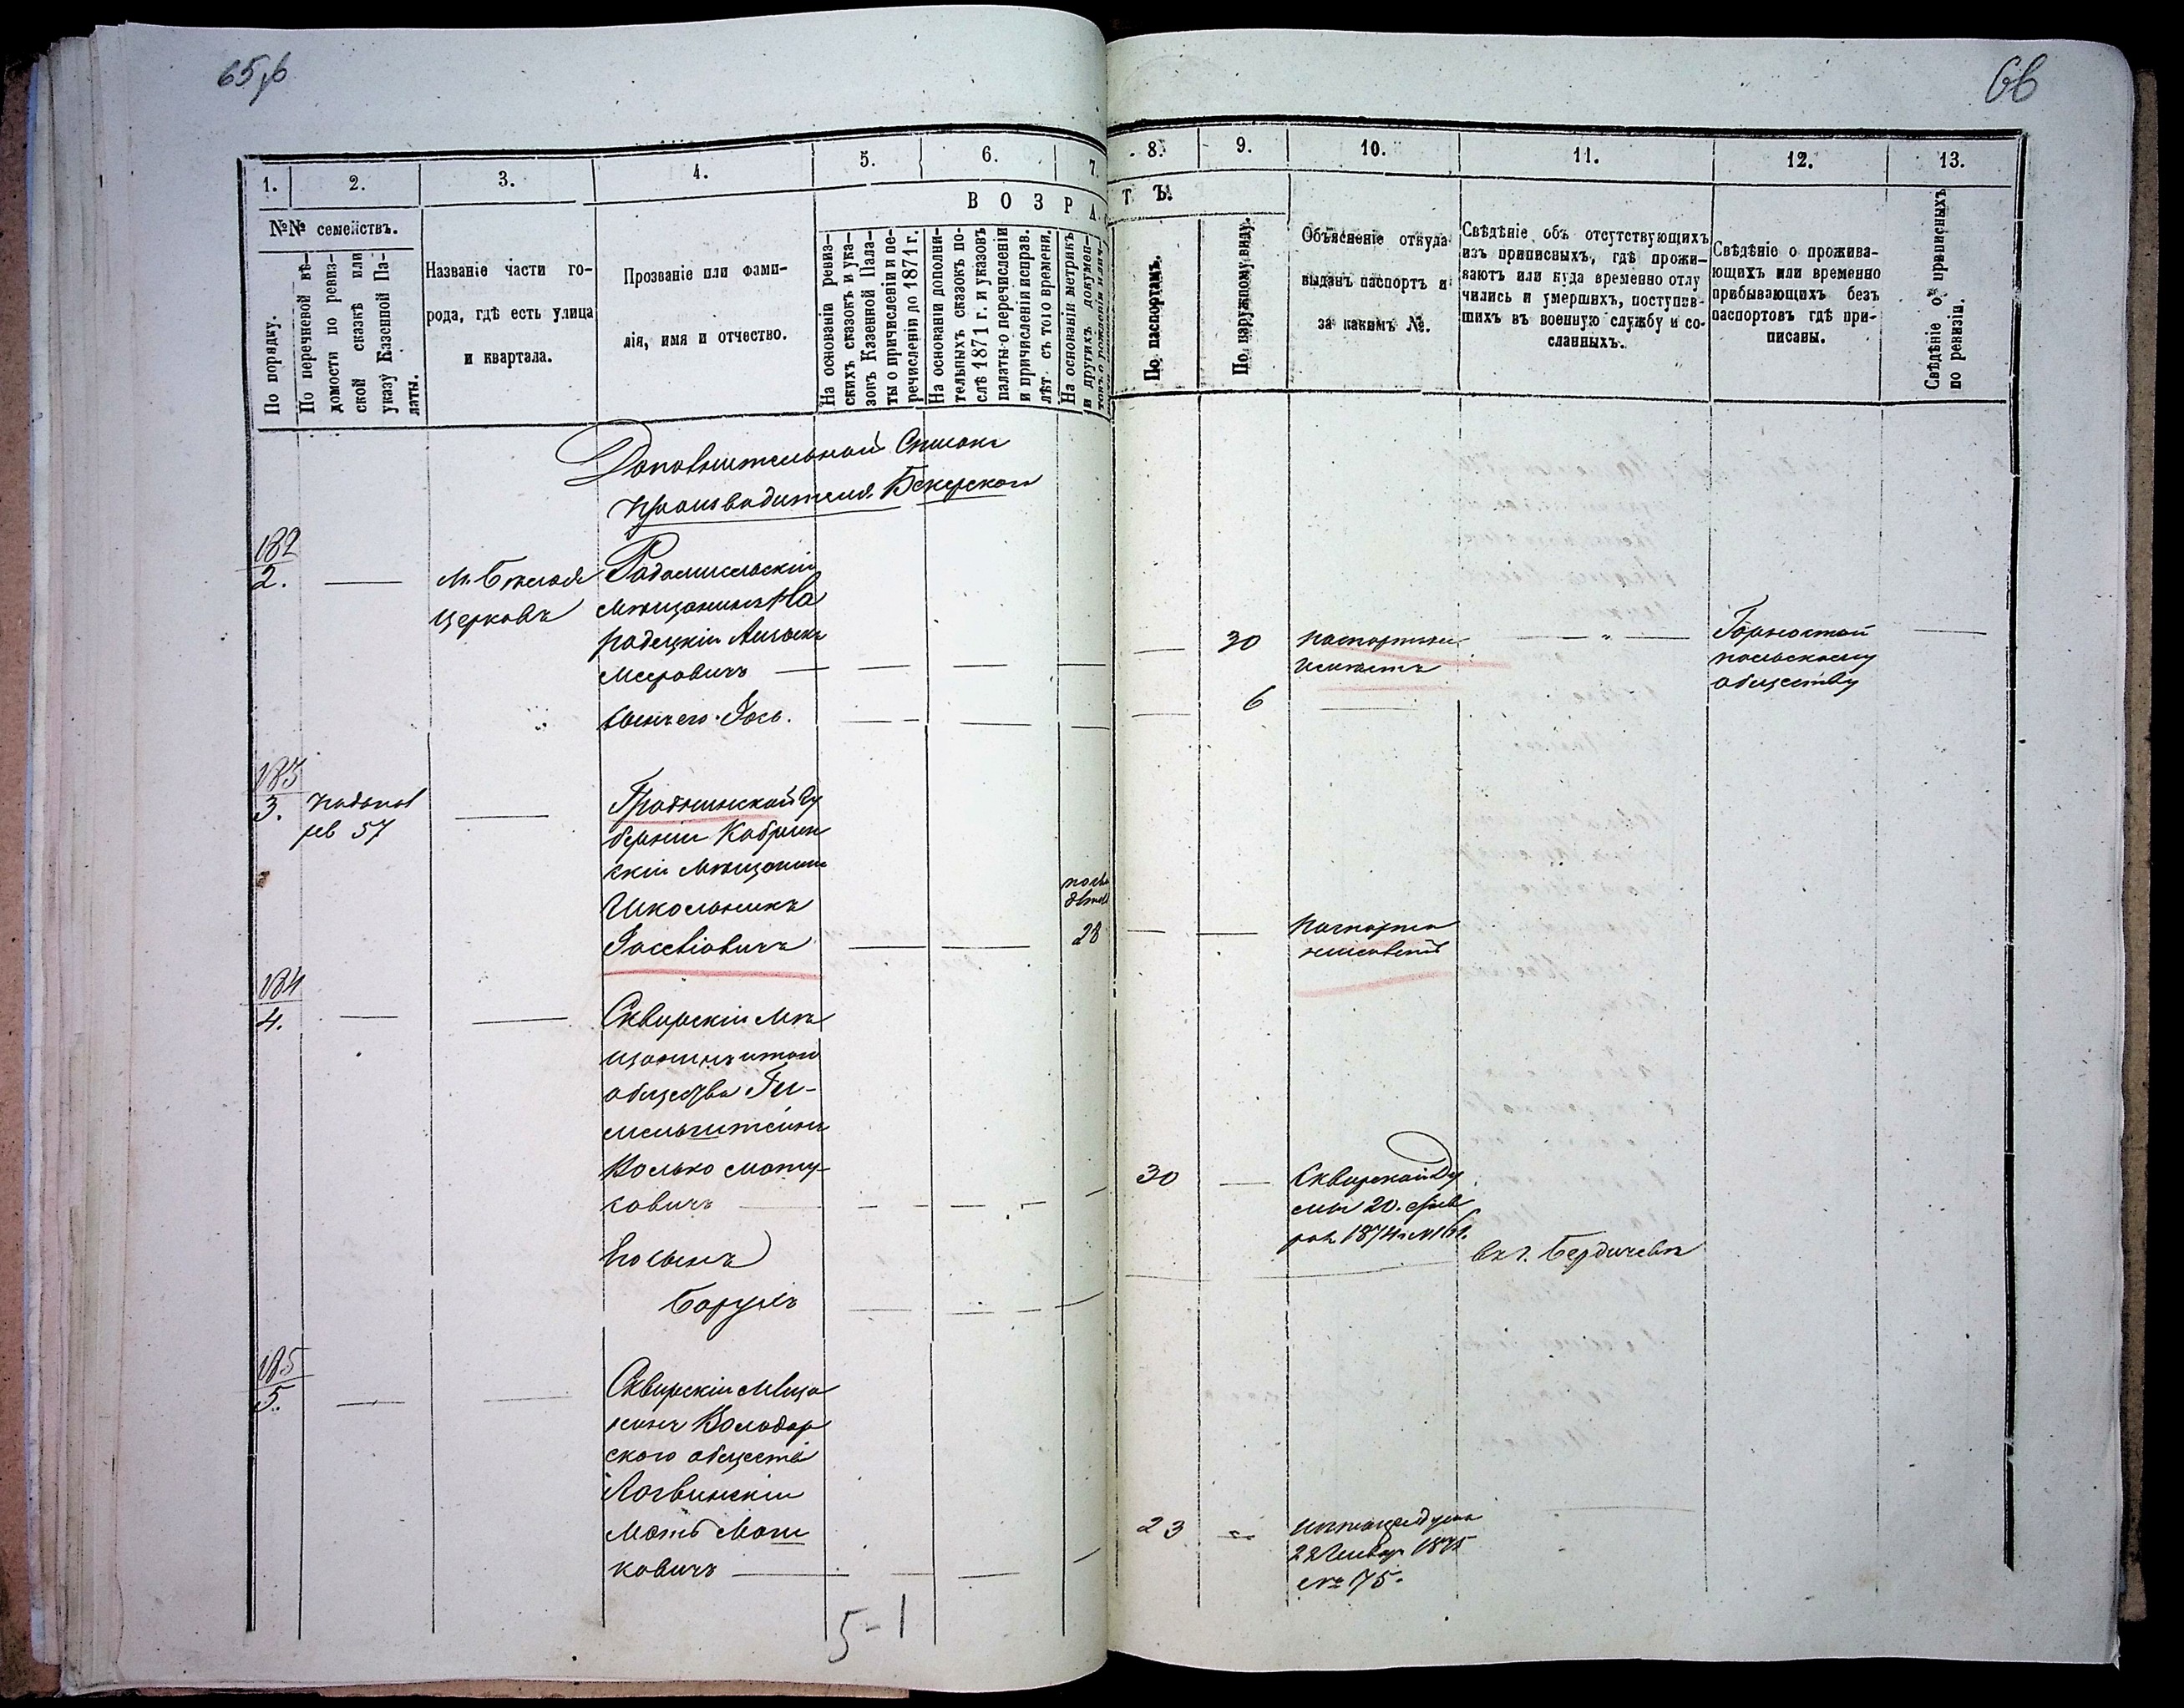 65 об
66
1.
2.
3.
4.
5.
6.
7.
8.
9.
10.
11.
12.
13.
№№ семействъ.
По порядку.
По перечневой вѣ-
домости по ревиз-
ской сказкѣ или
указу Казенной Па-
латы.
Названіе части го-
рода, гдѣ есть улица
и квартала.
Прозваніе или фами-
лія, имя и отчество.
ВОЗРА
ТЪ.
На основаніи ревиз-
скихъ сказокъ и ука-
зовъ Казенной Пала-
ты о причисленіи и пе-
речисленіи до 1871 г.
На основаніи дополни-
тельныхъ сказокъ по-
слѣ 1871 г. и указовъ
палаты о перечисленіи
и причисленіи исправ.
лѣт съ того времени.
На основаніи метрикъ
и другихъ докумен-
По паспортамъ.
По наружному виду.
Объясненіе откуда
выданъ паспортъ и
за какимъ №.
Свѣдѣніе объ отсутствующихъ
изъ приписныхъ, гдѣ прожи-
ваютъ или куда временно отлу
чились и умершихъ, поступив-
шихъ въ военную службу и со-
сланныхъ.
Свѣдѣніе о прожива-
ющихъ или временно
прибывающихъ безъ
паспортовъ гдѣ при-
писаны.
Свѣдѣніе о приписныхъ
по ревизіи.
Дополнительной Списокъ
производителя Бекерского
182
2.
М. Бѣлая
Церковь
Радомисльскій
мѣщанинъ На
родецкій
Меровичъ
30
паспорта
Горностай
польскому
обществу
сынъ его Іось.
6
183
3.
57
Гродненской Гу
берніи Кобрин
скій мѣщанинъ
Школьникъ
28
Паспорта
184
4.
Сквирскій мѣ
щанинъ того
общества Ги-
мельштейнъ
Волько Мошу-
ковичъ
30
Сквирской Ду
мы 20. Фев
раля 1874 г. №
Его сынъ
Борухъ
въ г. Бердичевѣ
185
5.
Сквирскій Мѣща
нинъ Володар
ского общества
Логвинскій
Моть Мош
ковичъ
23
22 Январ 1875
№ 75.
5-1